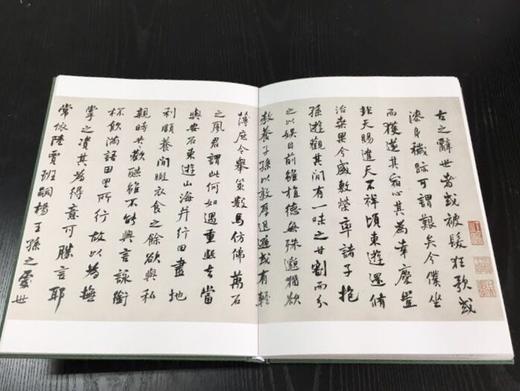 古之辭世者或被髮狂歌或
污身穢跡可謂艱矣今僕坐
而獲逸其宿心其為幸慶豈
非天賜違天不祥頃東遊還脩
治桑果今盛敷榮率諸子抱
孫遊觀其間有一味之甘割而分
之以娛目前雖植德無殊邈猶欲
教養子孫以敦厚退讓或有輕
薄庶令舉策數馬仿佛萬石
之風君謂此何如遇重熙去當
與安石東遊山海并行田盡地
利頤養閒暇衣食之餘欲與
親時共歡雖不能興言詠銜
杯飲滿語田里所行故以為撫
掌之資其為得意可勝言耶
常依陸賈班嗣楊王孫之處世